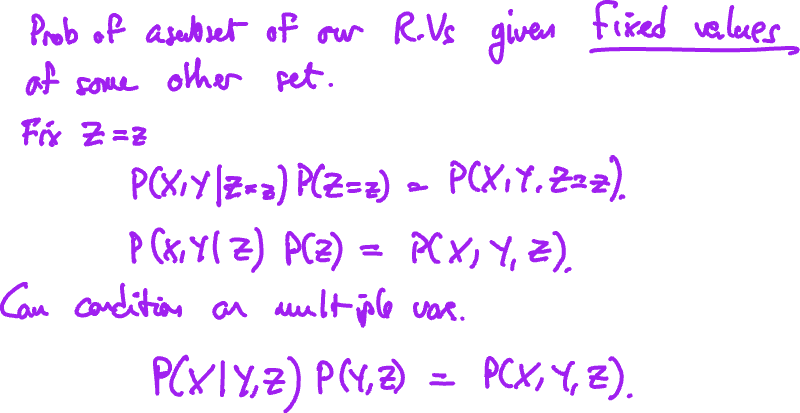 Prob of a subset of our R.Vs given fixed values
of some other set.
Fix Z = z
P(X,Y|Z=z) P(Z=z) = P(X,Y,Z=z).
P(X,Y|Z) P(Z) = P(X,Y,Z).
Can condition on multiple vars.
P(X|Y,Z) P(Y,Z) = P(X,Y,Z).